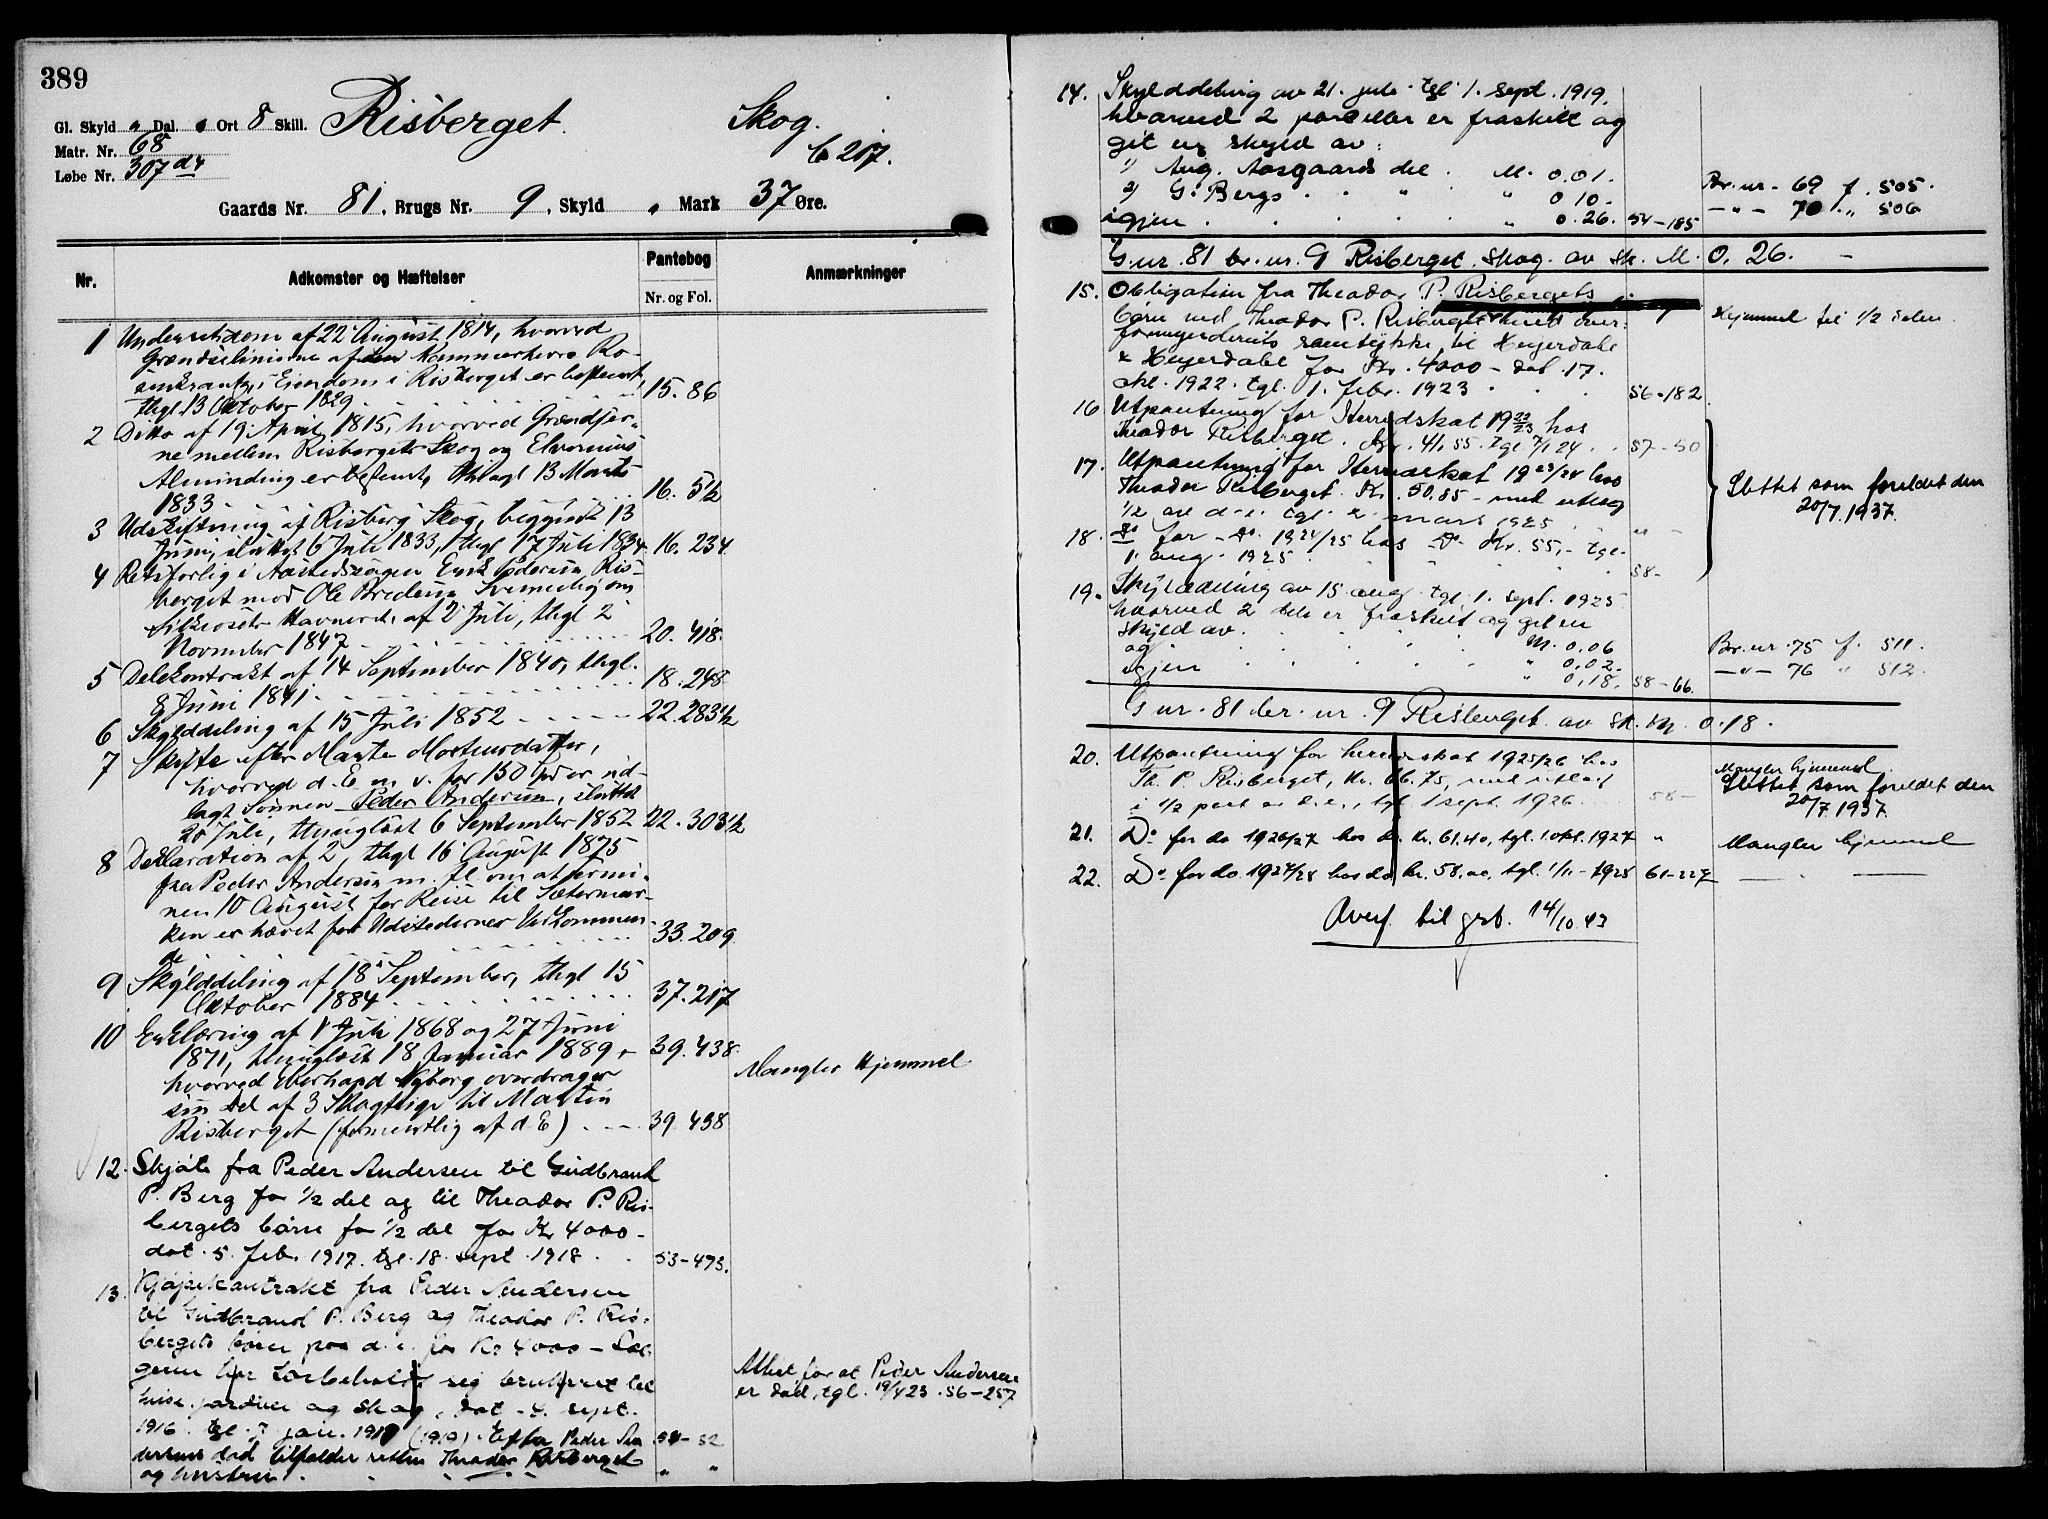 389
Gl. Skyld " Dal. " Ort 8 Skill. Risberget. Skog.
Matr. Nr. 68
Løbe Nr. 307 d4
b 217.
Gaards Nr. 81, Brugs Nr. 9, Skyld " Mark 37 Øre.
Nr. Adkomster og Hæftelser Pantebog Anmærkninger
Nr. og Fol.
1 Underretsdom af 22 August 1814, hvorved
Grændselinierne af den Kammerherre Ro-
senkrantz, i Eiendom i Risberget er bestemt,
thgl. 13 Oktober 1829 15. 86
2 Ditto af 19 April 1815, hvorved Grændser-
ne mellem Risbergets Skog og Elverums
Alminding er bestemt, thlagt 13 Marts
1833 16. 5 1/2
3 Udskiftning af Risberg Skog, begyndt 13
Juni, sluttet 6 Juli 1833, thgl 17 Juli 1834 16. 234
4 Retsforlig i Aastedssagen Erik Pedersen Ris-
berget mod Ole Bredesen om
Havneret, af 2 Juli, thgl 2
November 1847 20. 418.
5 Delekontrakt af 14 September 1840, thgl.
8 Juni 1841. 18. 248
6 Skylddeling af 15 Juli 1852 22. 283 1/2
7 Skifte efter Marte Mortensdatter,
hvorved d. E m. v. for 150 Spd er ud-
lagt Sønnen Peder Andersen, sluttet
20 Juli, thinglæst 6 September 1852 22. 303 1/2
8 Deklaration af 2, thgl 16 August 1875
fra Peder Andersen m. fl. om at termi-
nen 10 August for Reise til Sætermar-
ken er hævet for Udstedernes Vedkommen-
de 33. 209
9 Skylddeling af 18 September, thgl 15
Oktober 1884 37. 217
10 Erklæring af 1 Juli 1868 og 27 Juni
1871, thinglæst 18 Januar 1889, 39. 438.
hvorved Eberhard Nyborg overdrager
sin Del af 3 Skogteige til Martin
Risberget (formentlig af d. E) 39. 438
Mangler Hjemmel
12. Skjøte fra Peder Andersen til Gudbrand
P. Berg for 1/2 del og til Theodor P. Ris-
bergets børn for 1/2 del for Kr 4000 -
dat. 5. febr. 1917. tgl. 18. sept. 1918 53-493.
13. Kjøpekontrakt fra Peder Andersen
til Gudbrand P. Berg og Theodor P. Ris-
bergets børn paa d. e. for Kr 4000 - Sæl-
geren har forbeholdt sig bruksret til
huse, jordvei og skog, dat. 4. sept.
1916. tgl. 7 jan. 1919 (1919). Efter Peder An- 54-52
dersens død tilfalder retten Theodor Risberget
og hustru. " "
Attest for at Peder Andersen
er død, tgl. 19/4 23. 56-257
14. Skylddeling av 21. juli. tgl. 1. sept. 1919.
hvorved 2 parceller er fraskilt og
git en skyld av:
1) Aug. Aasgaards del. M. 0.01.
2) G. Bergs " " 0 10. Br. nr. 69 f. 505.
igjen " 0.26. 54-185 -"- 70 " 506
G. nr. 81 br. nr. 9 Risberget. Skog. av sk. M. 0. 26. -
15. Obligation fra Theodor P. Risbergets
børn ved Theodor P. Risberget med over-
formynderiets samtykke til Heyerdahl
& Heyerdahl for Kr. 4000 - dat. 17.
okt. 1922. tgl. 1. febr. 1923 56-182
Hjemmel til 1/2 delen.
16 Utpantning for Herredskat 19 22/23 hos
Theodor Risberget. Kr. 41.55. tgl 7/1 24. 57-50
17. Utpantning for Herredskat 19 23/24 hos
Theodor Risberget. Kr. 50.85 - med utlæg
1/2 av d. e. tgl. 2. mars 1925 " -
18. Do for - Do. 1924/25 hos Do. Kr. 55,- tgl.
1. aug. 1925 58-
Slettet som foreldet den
20/7 1937.
19. Skylddeling av 15. aug. tgl. 1. sept. 1925
hvorved 2 dele er fraskilt og git en
skyld av. M. 0.06 Br. nr. 75 f. 511.
og " 0.02. -"- 76 " 512.
igjen " 0,18. 58-66.
G nr. 81 br. nr. 9 Risberget av sk. M. 0.18.
20. Utpantning for herredskat 1925/26 hos
Th. P. Risberget, Kr. 66.75, med utlæg
i 1/2 part av d. e., tgl 1 sept. 1926. 58-
Mangler hjemmel
Slettet som foreldet den
20/7 1937
21. Do for do 1926/27 hos do kr. 61.40, tgl. 1 okt. 1927 "
Mangler hjemmel
22. Do for do. 1927/28 hos do kr. 58.00, tgl. 1/11-1928 61-227 — " —
Overf til grb. 14/10 43